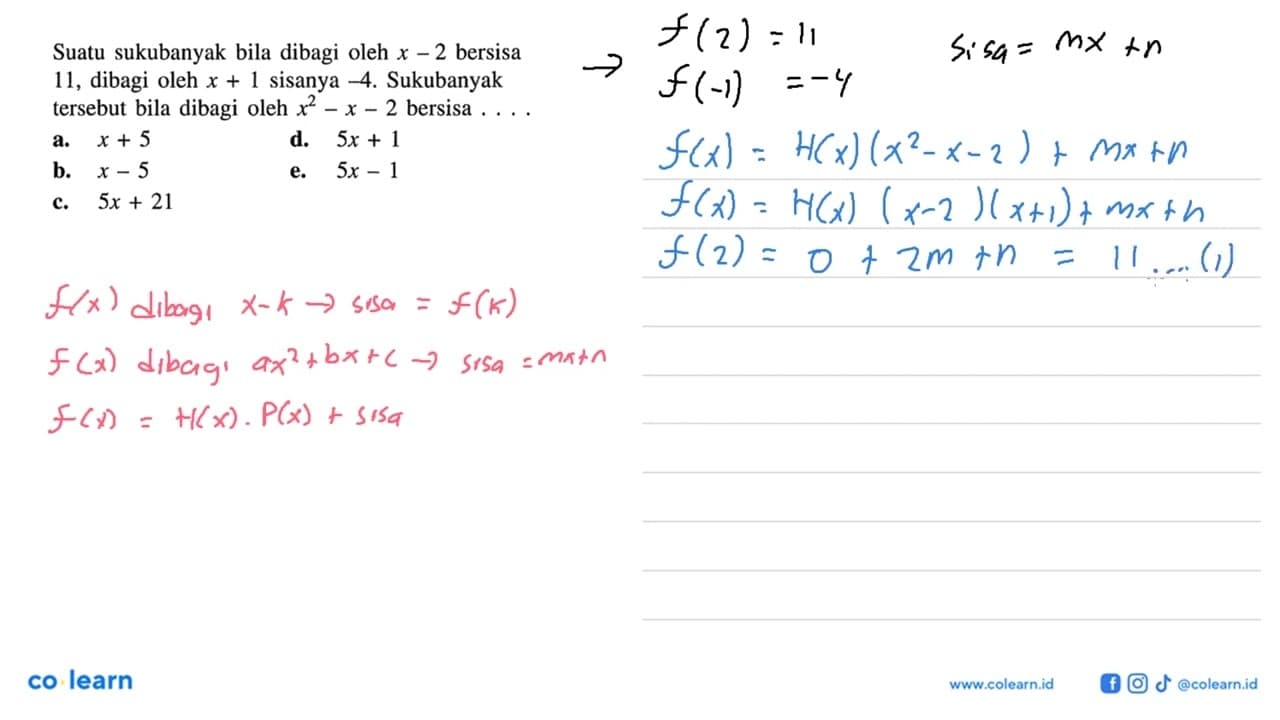 Suatu sukubanyak bila dibagi oleh x – 2 bersisa
11, dibagi oleh x + 1 sisanya –4. Sukubanyak
tersebut bila dibagi oleh x² – x – 2 bersisa . . . .
a. x + 5 d. 5x + 1
b. x – 5 e. 5x – 1
c. 5x + 21
f(x) dibagi x-k → sisa = f(k)
f(x) dibagi ax²+bx+c → sisa = mx+n
f(x) = H(x). P(x) + sisa
→ f(2) = 11 sisa = mx +n
f(-1) = -4
f(x) = H(x)(x²-x-2) + mx+n
f(x) = H(x) (x-2)(x+1)+mx+n
f(2) = 0 + 2m +n = 11....(1)
co learn
www.colearn.id @colearn.id